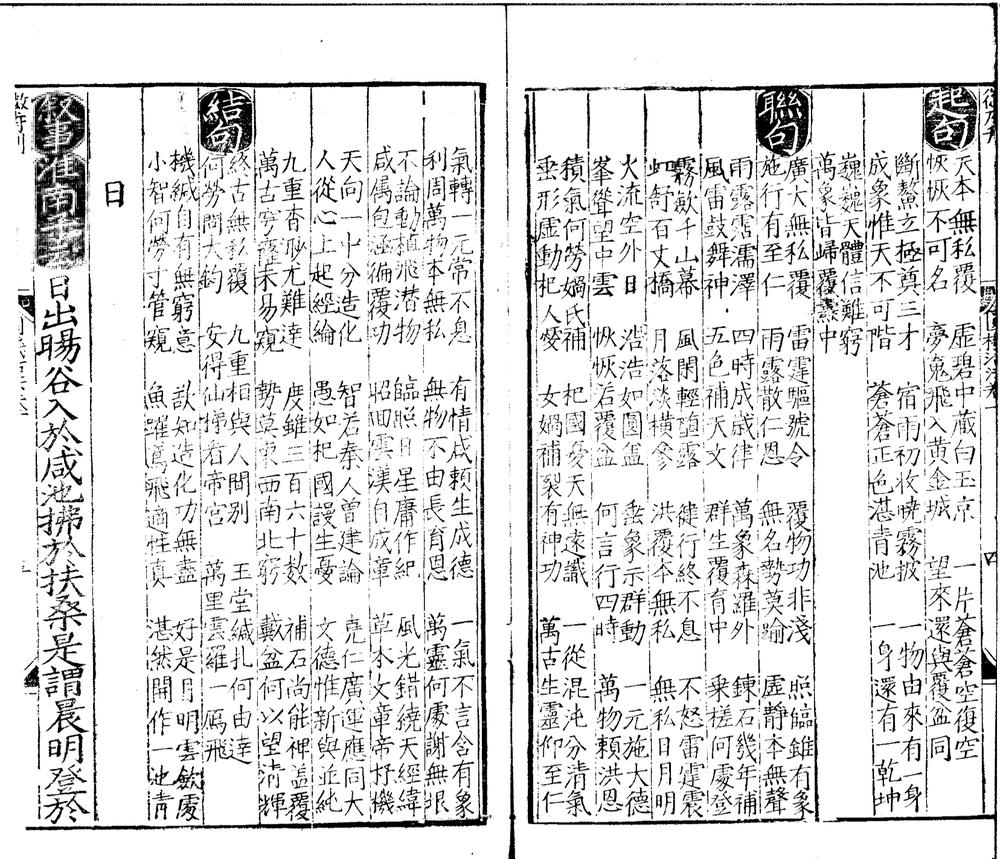 起句
天本無私覆　虛碧中藏白玉京　一片蒼蒼空復空
恢恢不可名　夢魂飛入黃金城　望來還與覆盆同
斷鰲立極奠三才　宿雨初收曉霧披　一物由來有一身
成象惟天不可階　蒼蒼正色湛青池　一身還有一乾坤
巍巍天體信難窮
萬象皆歸覆燾中
聯句
廣大無私覆　雷霆驅號令　覆物功非淺　照臨雖有象
施行有至仁　雨露散仁恩　無名勢莫踰　虛靜本無聲
雨露霑濡澤　四時成歲律　萬象森羅外　鍊石幾年補
風雷鼓舞神　五色補天文　群生覆育中　乘槎何處登
霧斂千山幕　風閑輕墮露　健行終不息　不怒雷霆震
虹舒百丈橋　月落淡橫參　洪覆本無私　無私日月明
火流空外日　浩浩如圓盖　垂象示群動　一元施大德
峯聳望中雲　恢恢若覆盆　何言行四時　萬物賴洪恩
積氣何勞媧氏補　杞國憂天無遠識　一從混沌分清氣
垂形虛動杞人憂　女媧補裂有神功　萬古生靈仰至仁
氣轉一元常不息　有情咸賴生成德　一氣不言含有象
利周萬物本無私　無物不由長育恩　萬靈何處謝無垠
不論動植飛潛物　臨照日星庸作紀　風光錯繞天經緯
咸屬包涵徧覆功　昭回雲漢自成章　草木文章帝杼機
天向一中分造化　智若秦人曾建論　堯仁廣運應同大
人從心上起經綸　愚如杞國謾生憂　文德惟新與並純
九重杳眇尤難達　度雖三百六十數　補石尚能裨蓋覆
萬古穹窿未易窺　勢莫東西南北窮　戴盆何以望清輝
結句
終古無私覆　九重相與人間別　玉堂緘札何由達
何勞問大鈞　安得仙梯看帝宮　萬里雲羅一鴈飛
機緘自有無窮意　孰知造化功無盡　好是月明雲斂處
小智何勞寸管窺　魚躍鳶飛適性真　湛然開作一池青
日
叙事淮南子日出暘谷入於咸池拂於扶桑是謂晨明登於